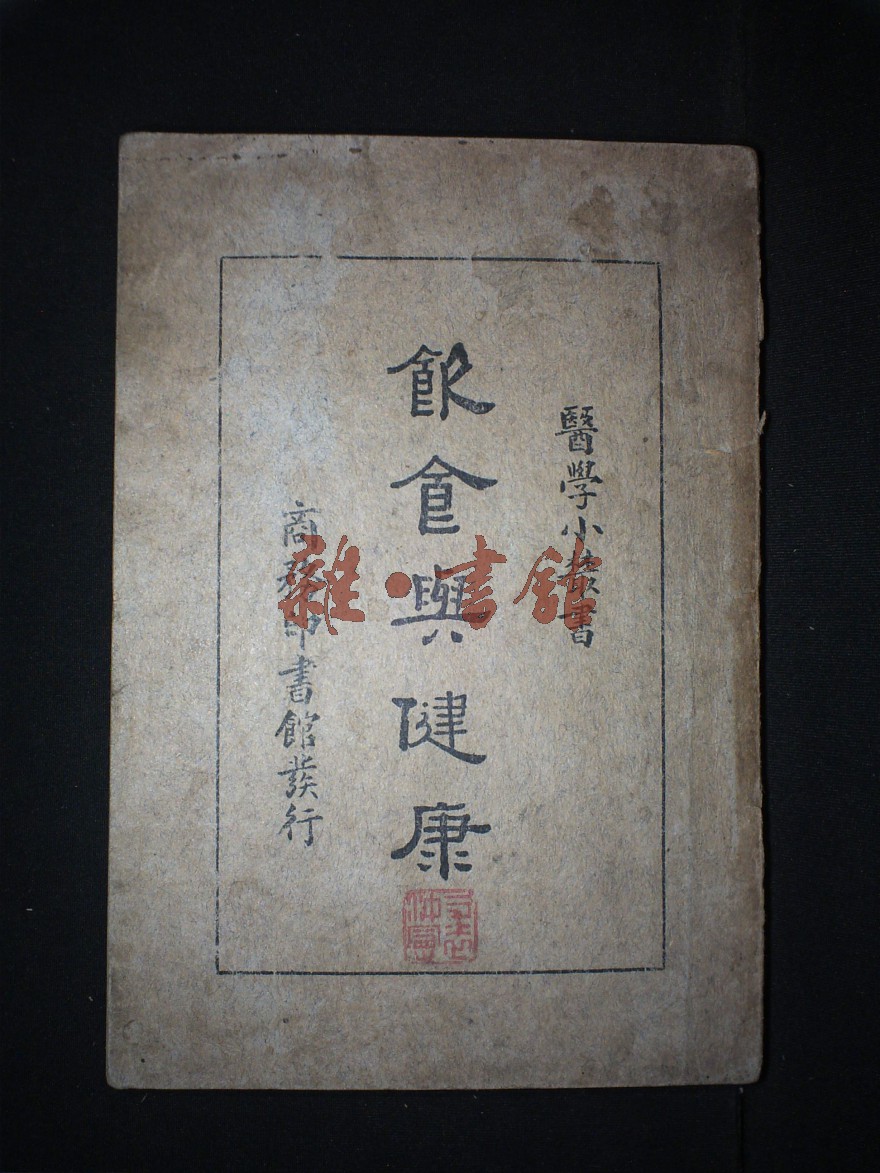 醫學小叢書
飲食與健康
商務印書館發行
雜·書館